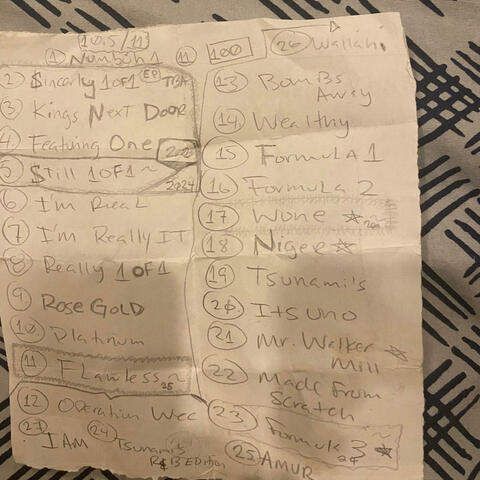 10.5/11
① Number 1
⑪ 100
㉖ Wallahi
② $incerly 1of1 EP TBA
③ Kings Next Door
④ Featuring One 2020
⑤ $till 1OF1~ 2024
⑥ I'm Real
⑦ I'm Really IT
⑧ Really 1 OF 1
⑨ Rose GOLD
⑩ Platinum
⑪ FLawless~ 25
⑫ Operation Wec
⑬ BomBs
Away
⑭ Wealthy
⑮ FormuLA 1
⑯ FormuLa 2
⑰ Wone ☆
⑱ Niger☆
⑲ Tsunami's
⑳ Its uno
㉑ Mr. Walker
Mill ☆
㉒ Made from
Scratch
㉓ Formula 3 ☆
㉗ I AM
㉔ Tsunami's
R&B Edition
㉕ AMUR